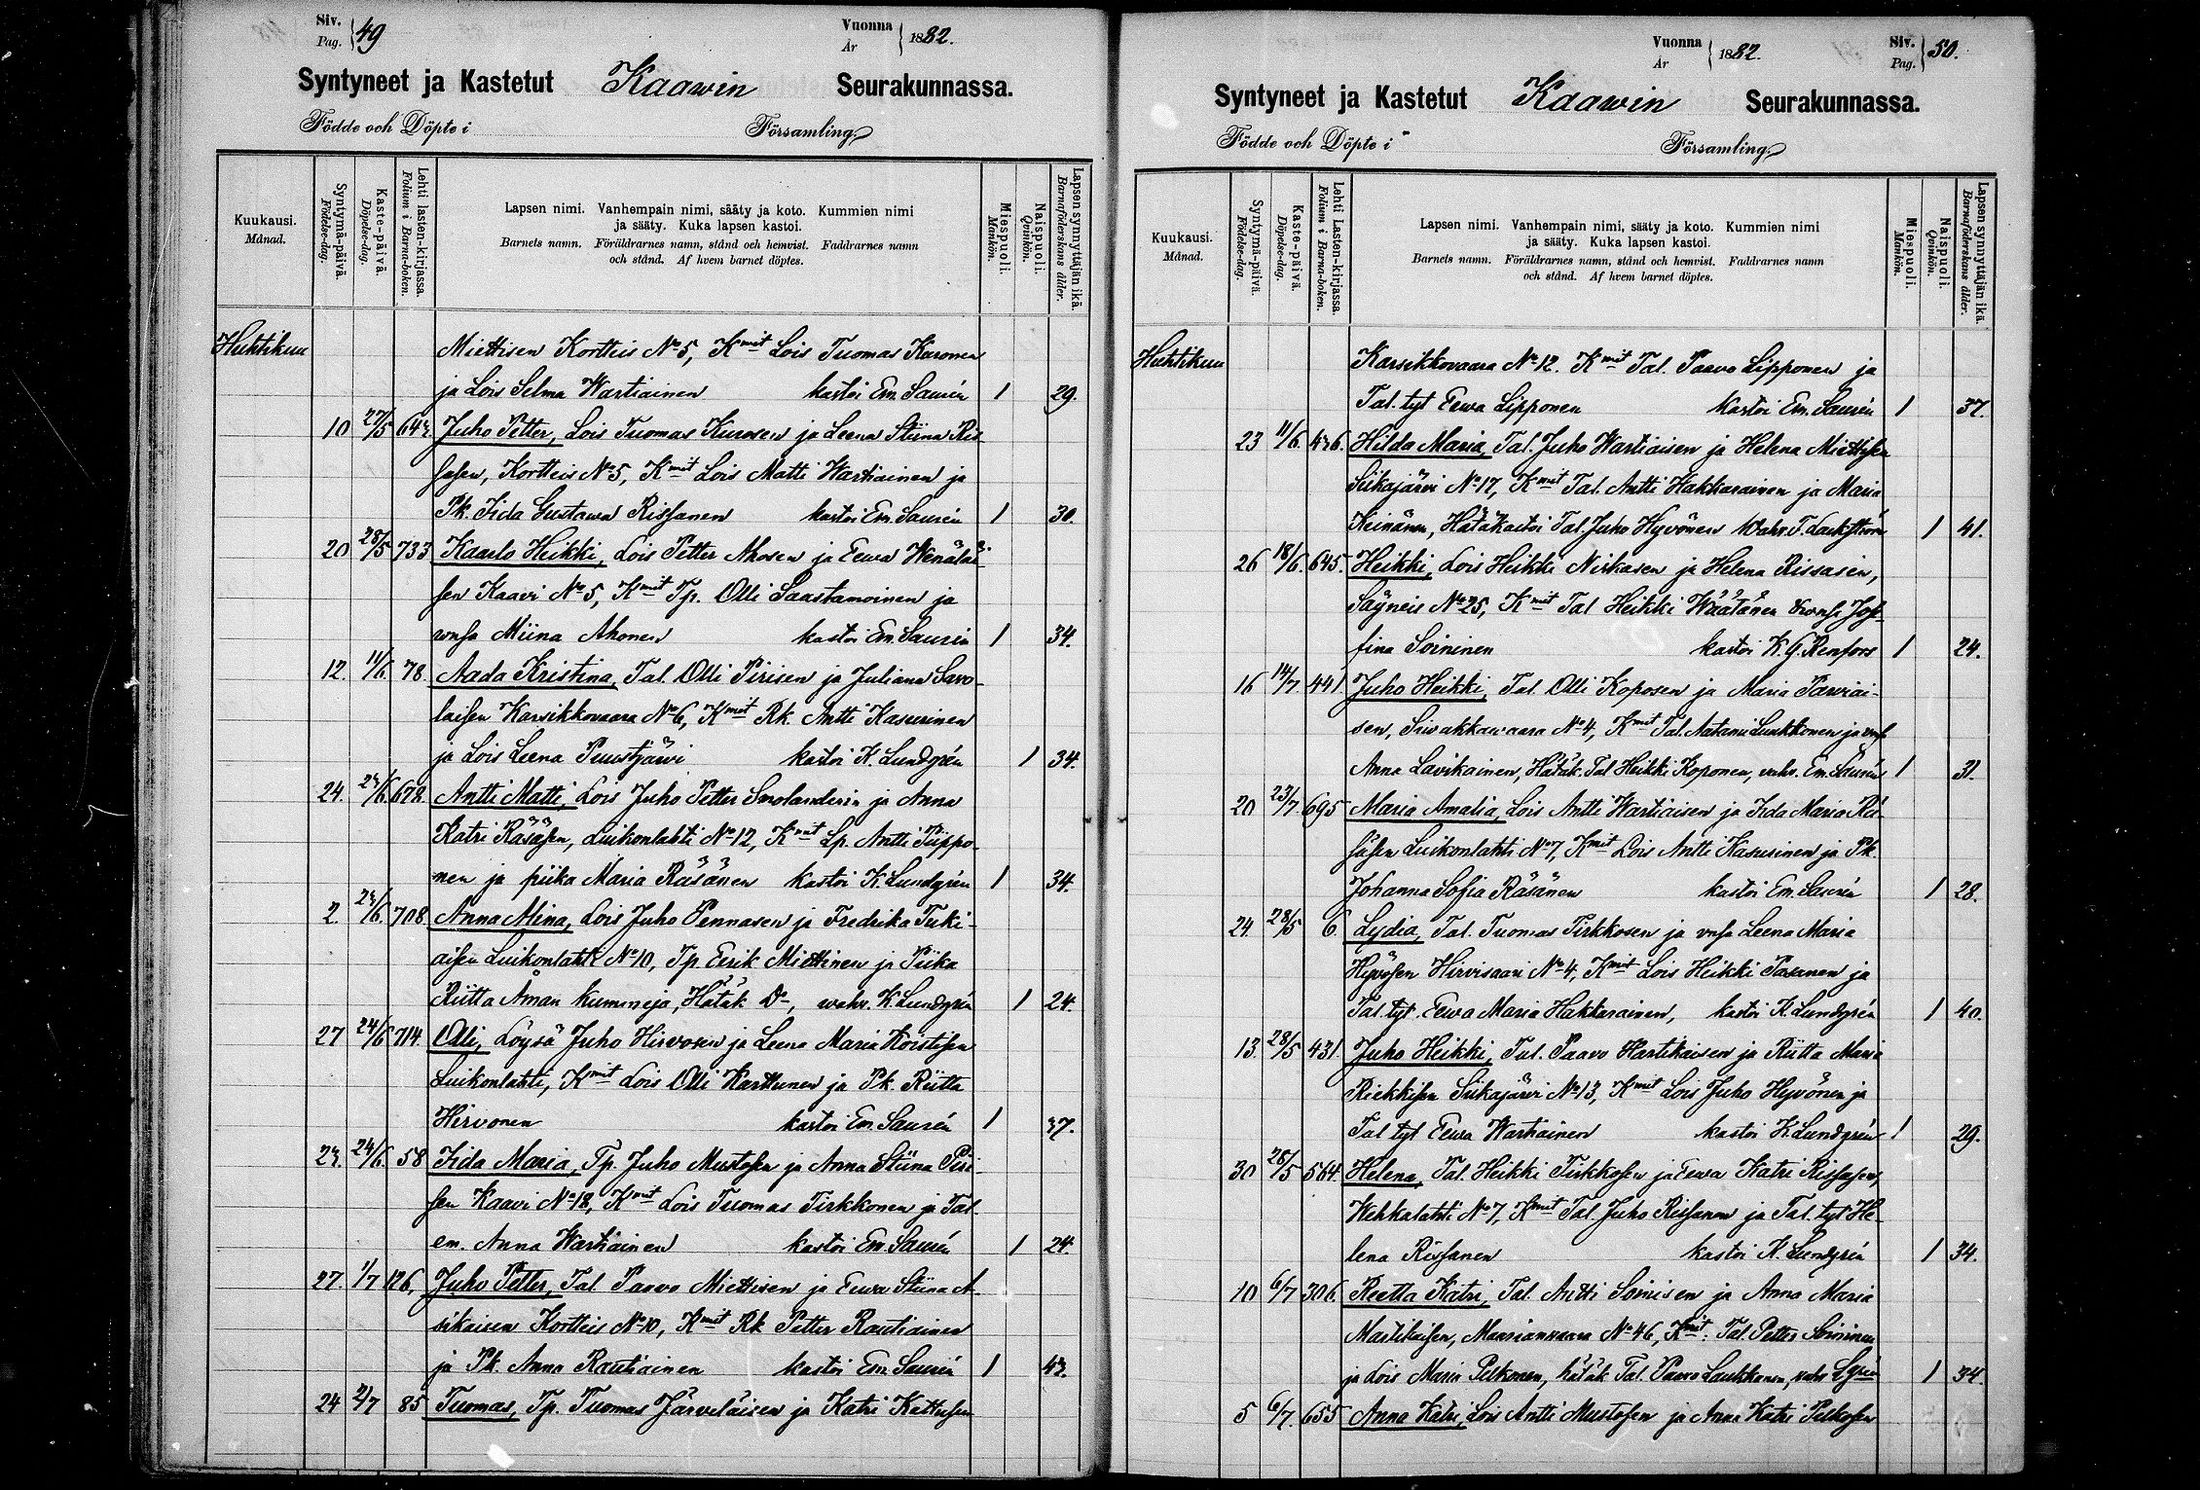 Siv. Pag. 49
Vuonna År 1882.
Syntyneet ja Kastetut Kaawin Seurakunnassa.
Födde och Döpte i Församling
Kuukausi. Månad.
Syntymä-päivä. Födelse-dag.
Kaste-päivä. Döpelse-dag.
Lehti lasten-kirjassa. Folium i Barna-boken.
Lapsen nimi. Vanhempain nimi, sääty ja koto. Kummien nimi
ja sääty. Kuka lapsen kastoi.
Barnets namn. Föräldrarnes namn, stånd och hemvist. Faddrarnes namn
och stånd. Af hvem barnet döptes.
Miespuoli. Mankön.
Naispuoli. Qvinkön.
Lapsen synnyttäjän ikä. Barnaföderskans ålder.
Huhtikuu Miettisen Kortteis No 5, Kmit Lois Tuomas Karonen
ja Lois Selma Wartiainen kastoi Em. Saurén 1 29.
10 27/5 642. Juho Petter, Lois Tuomas Kurosen ja Leena Stiina Ris
sasen, Kortteis No 5, Kmit Lois Matti Wartiainen ja
Pk. Iida Gustawa Rissanen kastoi Em. Saurén 1 30.
20 28/5 733 Kaarlo Heikki, Lois Petter Ahosen ja Eewa Wenäläi
sen Kaavi No 5, Kmit Tp. Olli Saastamoinen ja
wmsa Miina Ahonen kastoi Em. Saurén 1 34.
12. 11/6. 78. Aada Kristina, Tal. Olli Pirisen ja Juliana Savo-
laisen Karsikkovaara No 6, Kmit Rk. Antti Kasurinen
ja Lois Leena Puustjärvi kastoi K. Lundgrén 1 34.
24. 24/6. 672. Antti Matti, Lois Juho Petter Smolanderin ja Anna
Katri Räsäsen, Luikonlahti No 12, Kmit Lp. Antti Piippo-
nen ja piika Maria Räsänen kastoi K. Lundgrén 1 34.
2. 24/6. 708. Anna Miina, Lois Juho Pennasen ja Fredrika Tuki-
aisen Luikonlahti No 10, Tp. Eerik Miettinen ja Piika
Riitta Åman kummeja, Hätäk Do, wahv. K. Lundgrén 1 24.
27 24/6 714. Olli, Löysä Juho Hirvosen ja Leena Maria Koistisen
Luikonlahti, Kmit Lois Olli Karttunen ja Pk. Riitta
Hirvonen kastoi Em. Saurén 1 37.
24/6. 58 Iida Maria, Tp. Juho Mustosen ja Anna Stiina Piri-
sen Kaavi No 18, Kmit Lois Tuomas Tirkkonen ja Tal.
em. Anna Wartiainen kastoi Em. Saurén 1 24.
27. 1/7 126, Juho Petter, Tal. Paavo Miettisen ja Eewa Stiina A-
sikaisen Kortteis No 10, Kmit Rk Petter Rautiainen
ja Pk. Anna Rautiainen kastoi Em. Saurén 1
24 2/7 85 Tuomas, Tp. Tuomas Järveläisen ja Katri Kettusen
Vuonna År 1882.
Siv. Pag. 50.
Syntyneet ja Kastetut Kaawin Seurakunnassa.
Födde och Döpte i Församling
Kuukausi. Månad.
Syntymä-päivä. Födelse-dag.
Kaste-päivä. Döpelse-dag.
Lehti Lasten-kirjassa. Folium i Barna-boken.
Lapsen nimi. Vanhempain nimi, sääty ja koto. Kummien nimi
ja sääty. Kuka lapsen kastoi.
Barnets namn. Föräldrarnes namn, stånd och hemvist. Faddrarnes namn
och stånd. Af hvem barnet döptes.
Miespuoli. Mankön.
Naispuoli. Qvinkön.
Lapsen synnyttäjän ikä. Barnaföderskans ålder.
Huhtikuu Karsikkovaara No 12. Kmit Tal. Paavo Lipponen ja
Tal. tyt Eewa Lipponen kastoi Em. Saurén 1 37.
23 11/6. 426. Hilda Maria, Tal. Juho Wartiaisen ja Helena Miettisen
Siikajärvi No 17, Kmit Tal. Antti Hakkarainen ja Maria
Keinänen, Hätäkastoi Tal. Juho Hyvönen wahv. 1 41.
26 18/6. 645. Heikki, Lois Heikki Niskasen ja Helena Rissasen,
Säyneis No 25, Kmit Tal Heikki Wäätänen Jose-
fina Soininen kastoi K. G. Renfors 1 24.
16 14/7 441 Juho Heikki, Tal. Olli Koposen ja Maria Parviai-
sen, Siwakkawaara No 4, Kmit Tal. Natanu Luukkonen ja
Anna Lavikainen, Hätäk. Tal Heikki Koponen, wahv. Em. Saurén 1 31.
20 23/7. 695 Maria Amalia, Lois Antti Wartiaisen ja Iida Maria Rä-
säsen Luikonlahti No 7, Kmit Lois Antti Kasurinen ja Pk.
Johanna Sofia Räsänen kastoi Em. Saurén 1 28.
24. 28/5 6. Lydia, Tal. Tuomas Tirkkosen ja vmsa Leena Maria
Hyvösen Hirvisaari No 4, Kmit Lois Heikki Pasanen ja
Tal. tyt. Eewa Maria Hakkarainen, kastoi K. Lundgrén 1 40.
13. 28/5 431. Juho Heikki, Tal. Paavo Hartikaisen ja Riitta Maria
Riekkisen Siikajärvi No 13, Kmit Lois Juho Hyvönen ja
Tal tyt Eewa Wartiainen kastoi K. Lundgrén 1 29.
30 28/5 564. Helena, Tal. Heikki Tirkkosen ja Eewa Katri Rissasen,
Wehkalahti No 7, Kmit Tal. Juho Rissanen ja Tal. tyt He-
lena Rissanen kastoi K. Lundgrén 1 34.
10 6/7 306. Reetta Katri, Tal. Antti Soinisen ja Anna Maria
Martikaisen, Maarianvaara No 46, Kmit. Tal. Petter Soininen
ja Lois Maria Pelkonen, hätäk Tal. Paavo Laukkanen, wahv Lgrén 1 34.
5 6/7. 655 Anna Katri, Lois Antti Mustosen ja Anna Katri Pelkosen